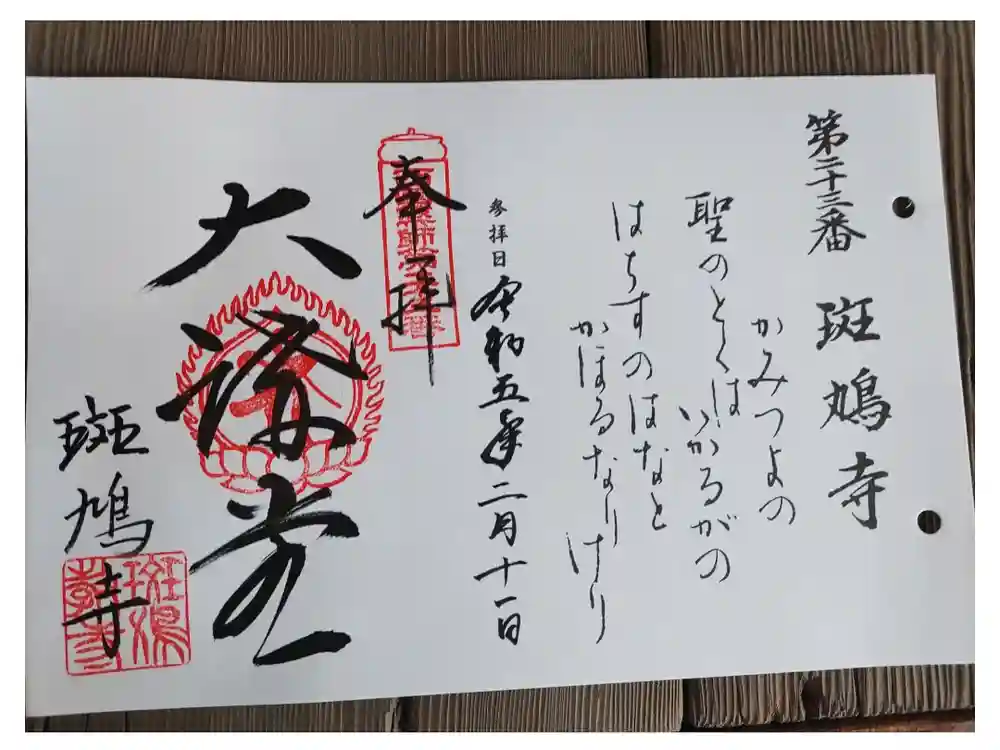 第二十三番 斑鳩寺
かみつよの
聖のとくは いかるがの
はちすのはなと
かほるなりけり
参拝日 令和五年二月十一日
奉拝
大講堂
斑鳩寺
斑鳩